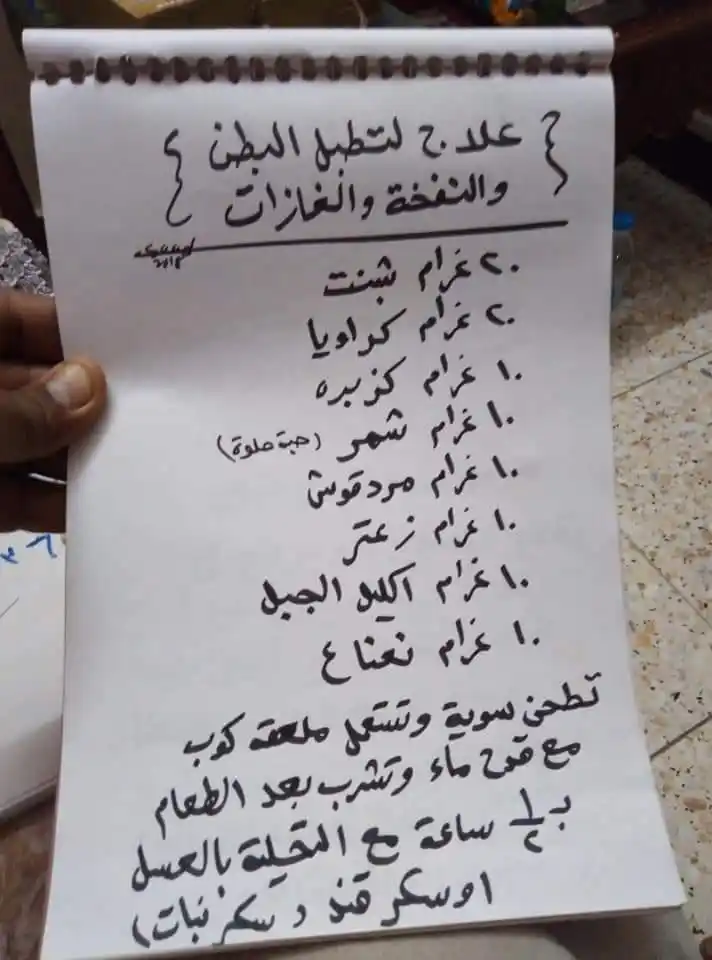 { علاج لتطبل البطن
والنفخة والغازات }
2018
٢٠ غرام شبنت
٢٠ غرام كراويا
١٠ غرام كزبره
١٠ غرام شمر (حبة حلوة)
١٠ غرام مردقوش
١٠ غرام زعتر
١٠ غرام اكليل الجبل
١٠ غرام نعناع
تطحن سوية وتستعمل ملعقة كوب
مع قدح ماء وتشرب بعد الطعام
بـ ١/٢ ساعة مع التحلية بالعسل
او سكر قند (سكر نبات)